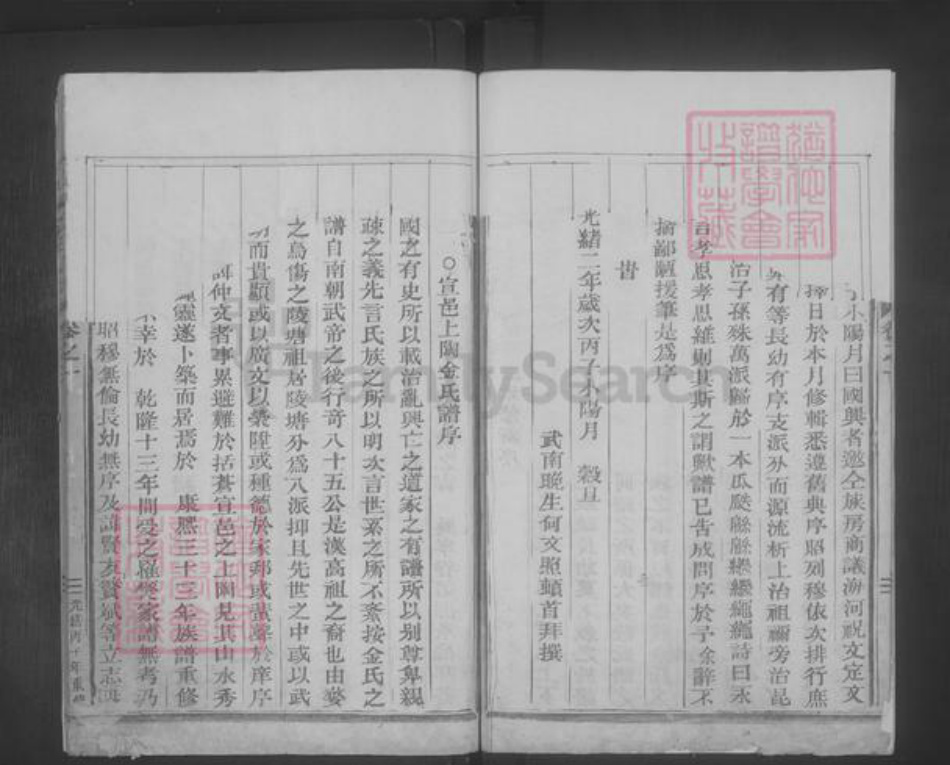 小陽月曰國興者邀仝族房商議海河祝文定文
擇日於本月修輯悉遵舊典序昭列穆依次排行庶
有等長幼有序支派外而源流析上治祖禰旁治昆
治子孫殊萬派歸於一本瓜瓞緜緜繩繩詩曰永
言孝思孝思維則其斯之謂歟譜已告成問序於予余辭不
揣鄙俚援筆是爲序
旹
光緒二年歲次丙子小陽月 穀旦
武南晚生何文照頓首拜撰
○宣邑上陶金氏譜序
國之有史所以載治亂興亡之道家之有譜所以别尊卑親
疎之義先言氏族之所以明次言世系之所不紊按金氏之
譜自南朝武帝之後行竒八十五公是漢高祖之裔也由婺
之烏傷之陵塘祖居陵塘分爲八派抑且先世之中或以武
而貴顯或以廣文以榮陞或種德於家邦或蜚聲於庠序
仲文者事累避難於括蒼宣邑之上陶見其山水秀
靈遂卜築而居焉於 康熙三十三年族譜重修
不幸於 乾隆十三年間受之罹燹家譜無考乃
昭穆無倫長幼無序及譜賢友賢斌等立志
卷之一
光緒丙子年重修
FamilySearch